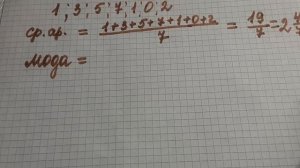 1; 3; 5; 7; 1; 0; 2
ср.ар. = \frac{1+3+5+7+1+0+2}{7} = \frac{19}{7} = 2
мода =